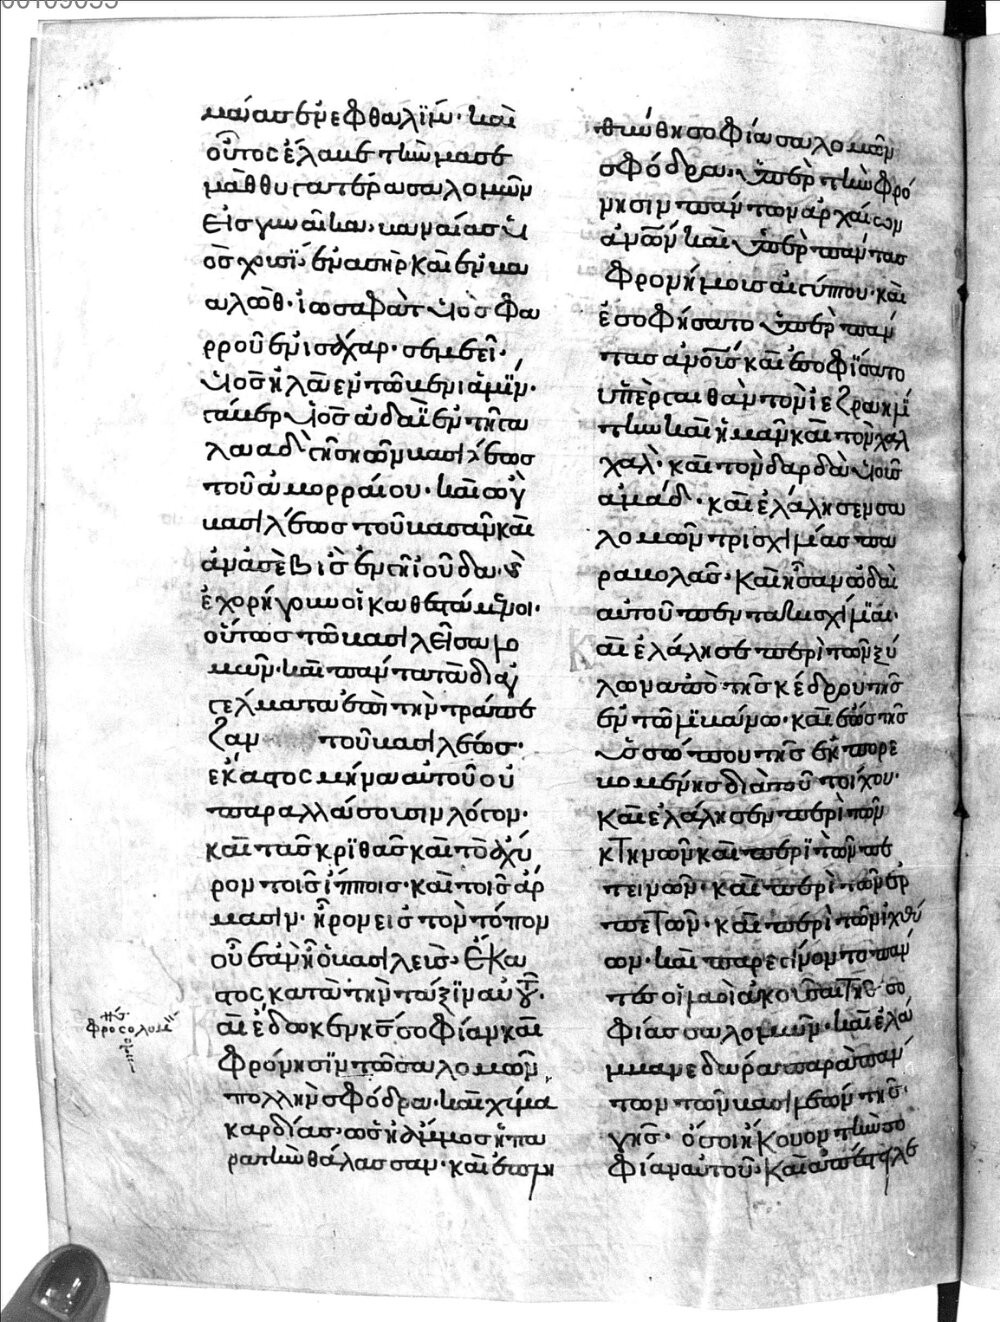 μαάας ἐν ἐφθαλίμ· καὶ
οὗτος ἔλαβε τὴν μασε
μὰθ θυγατέρα σαλομῶν
εἰς γυναῖκα· καναίας υἱ
ὃς χουσί· ἐν ἀσὴρ καὶ ἐν βα
αλώθ· ἰωσαφὰτ υἱὸς φα
ρροῦ ἐν ἰσάχαρ· σεμεεῒ·
υἱὸς ἠλᾶ ἐν τῶ βενιαμΐν·
γάβερ υἱὸς ἀδαῒ ἐν τῆ γα
λαὰδ γῆ σηῶν βασιλέως
τοῦ ἀμορραίου· καὶ ὢγ
βασιλέως τοῦ βασὰν καὶ
ἐχορήγουν οἱ καθεσταμένοι·
οὕτως τῶ βασιλεῖ σαλο
μῶν· καὶ πάντα τὰ διαγ
γέλματα ἐπὶ τὴν τράπε
ζαν τοῦ βασιλέως·
ἕκαστος μῆνα αὐτοῦ οὐ
παραλλάσουσιν λόγον·
καὶ τὰς κριθὰς καὶ τὸ ἄχυ
ρον τοῖς ἵπποις· καὶ τοῖς ἅρ
μασιν· ἦρον εἰς τὸν τόπον
οὗ ἐὰν ἦ ὁ βασιλεὺς· Ἕκα
στος κατὰ τὴν τάξϊν αὐτοῦ·
Καὶ ἔδωκεν κς σοφίαν καὶ
φρόνησϊν τῶ σαλομῶν
πολλὴν σφόδρα· καὶ χύμα
καρδίας· ὡς ἡ ἄμμος ἡ πα
ρὰ τὴν θάλασσαν· καὶ ἐπλη
θύνθη σοφία σαλομῶν
σφόδρα· ὑπὲρ τὴν φρό
νησιν πάντων ἀρχαίων
ἀνῶν καὶ ὑπὲρ πάντας
φρονήμους αἰγύπτου· καὶ
ἐσοφήσατο ὑπὲρ πάν
τας ἀνους καὶ ἐσοφΐσατο
ὑπὲρ γαιθὰν τὸν ἰεζραηλί
την καὶ ἠμὰν καὶ τὸν χαλ
χαλ· καὶ τὸν δαρδὰ υἱοὺς
αμαδ· καὶ ἐλάλησεν σα
λομῶν τρισχιλίας πα
ραβολας· καὶ ἦσαν ὠδαὶ
αὐτοῦ πεντακισχίλϊαι·
Καὶ ἐλάλησε περὶ τῶν ξύ
λων ἀπὸ τῆς κέδρου τῆς
ἐν τῶ λϊβάνω· καὶ ἕως τῆς
ὑσσώπου τῆς ἐκπορε
βομένης διὰ τοῦ τοίχου·
καὶ ἐλάλησεν περὶ τῶν
κτηνῶν καὶ περὶ τῶν πε
τεινῶν· καὶ περὶ τῶν ἑρ
πετῶν· καὶ περὶ τῶν ἰχθύ
ων· καὶ παρεγίνοντο πάν
τες οἱ λαοὶ ἀκοῦσαι τῆς σο
φίας σαλομῶν· καὶ ἐλά
μβανε δῶρα παρὰ πάν
των τῶν βασιλέων τῆς
γῆς· ὅσοι ἤκουον τὴν σο
φίαν αὐτοῦ· Καὶ ἀπέστειλε